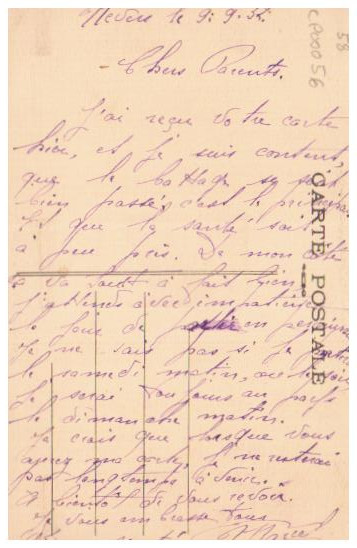 Nevers le 9. 9. 32.
58
CP00056
Chers Parents.
J'ai reçu votre carte
hier, et je suis content,
que le battage se soit
bien passé, c'est le principal
Et que la santé soit
à peu près. De mon côté
la santé à fait bien
J'attends avec impatience
le jour de partir en permission
Je ne sais pas si je partirai
le samedi matin, ou le soir
Je serai toujours au pays
le dimanche matin.
Je crois que lorsque vous
aurez ma carte, il ne resterai
pas longtemps à venir.
A bientôt de vous revoir.
Je vous embrasse tous
CARTE POSTALE